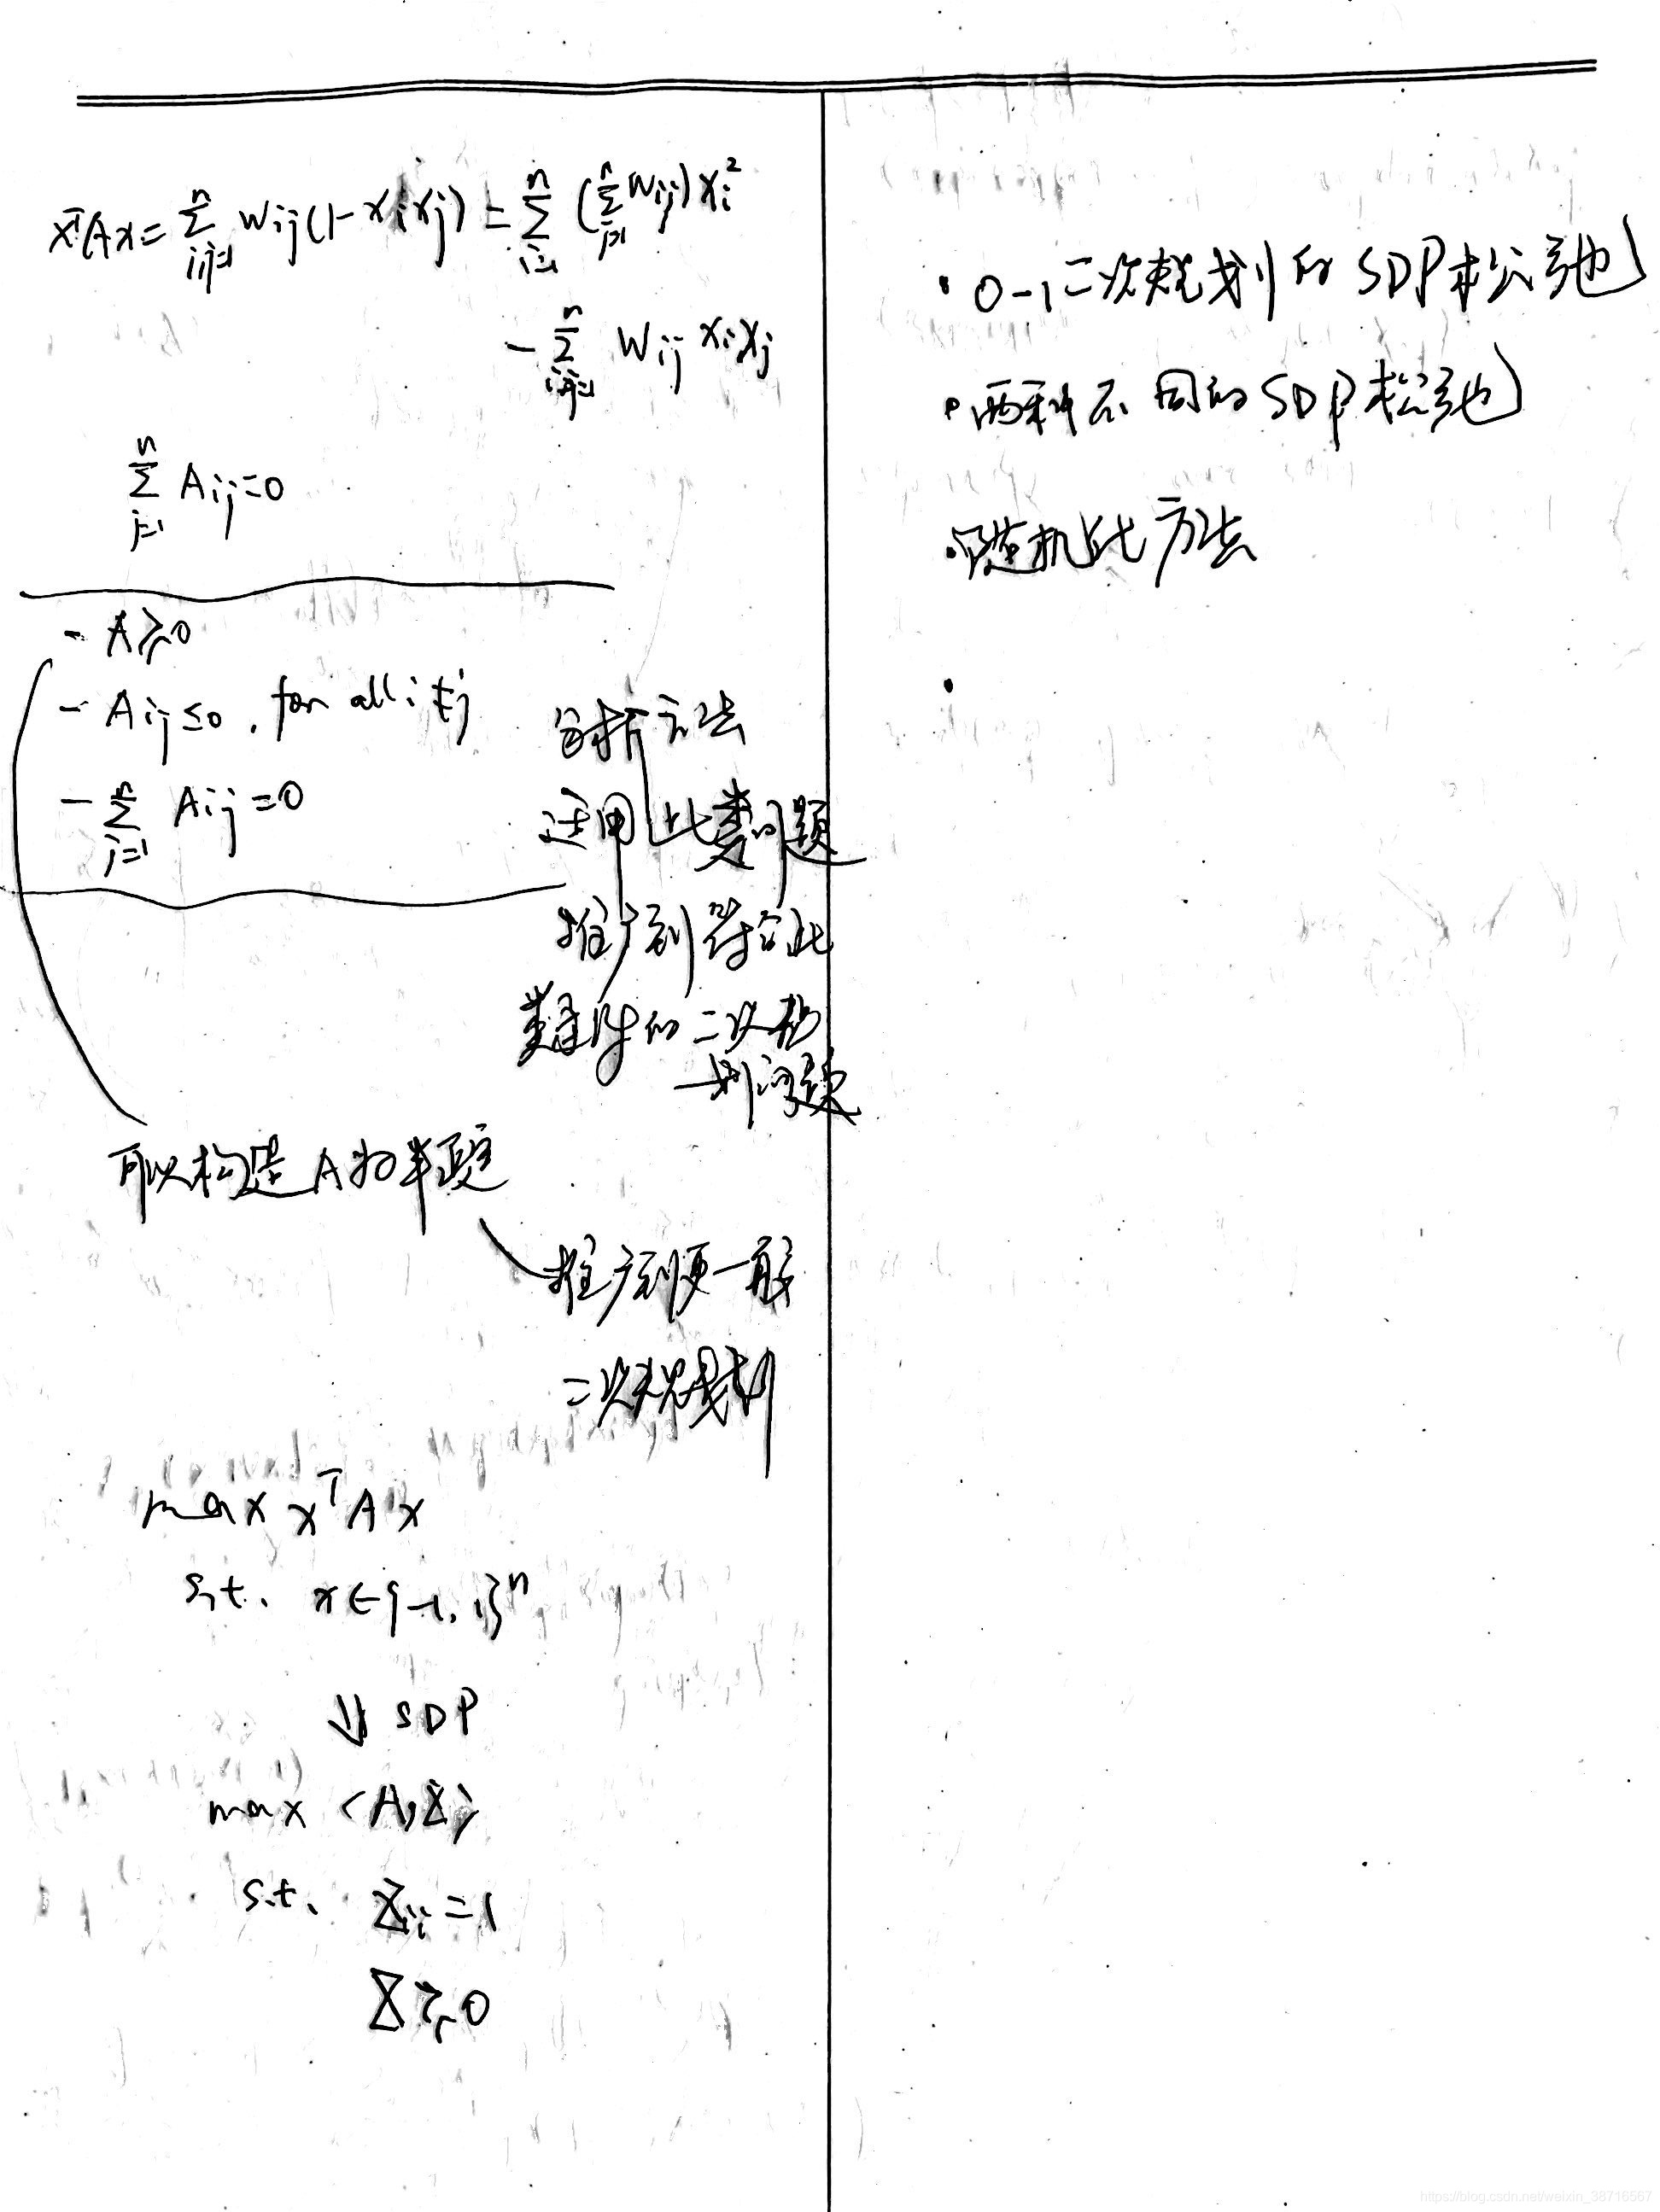 xᵀAx = Σ_{i,j=1}^{n} Wij(1-xixj) = Σ_{i=1}^{n} (Σ_{j=1}^{n} Wij) xi²
- Σ_{i,j=1}^{n} Wij xixj
Σ_{j=1}^{n} Aij=0
- A≽0
- Aij≤0, for all i≠j
- Σ_{j=1}^{n} Aij=0
分析方法
适用此类问题
推广到符合此
类矩阵的二次规
划问题
可以构造A为半正定
推广到更一般
二次规划
max xᵀAx
s.t. x∈{-1,1}ⁿ
⇓ SDP
max <A,X>
s.t. Xii=1
X≽0
· 0-1二次规划的SDP松弛
· 两种不同的SDP松弛
· 随机化方法
·
https://blog.csdn.net/weixin_38716567